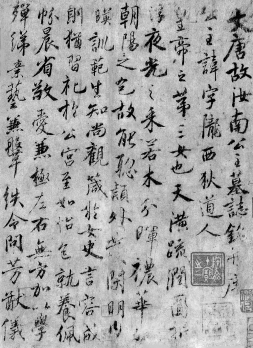 大唐故汝南公主墓誌銘并序
公主諱字隴西狄道人
皇帝之第三女也天潢疏潤圓折
浮夜光之采若木分暉穠華照
朝陽之色故能聰穎外發閑明內
暎訓範生知尚觀箴於女史言容成
則猶習禮於公宮至如怡色就養佩
帉晨省敬愛兼極左右無方加以學
殫綈素藝兼鞶紩令問芳猷儀